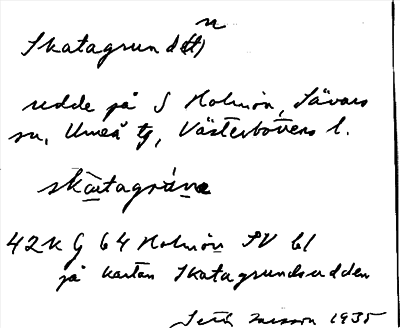 n
Skatagrund(et)
udde på S Holmön, Sävars
sn, Umeå tg, Västerbottens l.
skatagráne
42K G 64 Holmön SV bl
på kartan Skatagrundsudden
1935